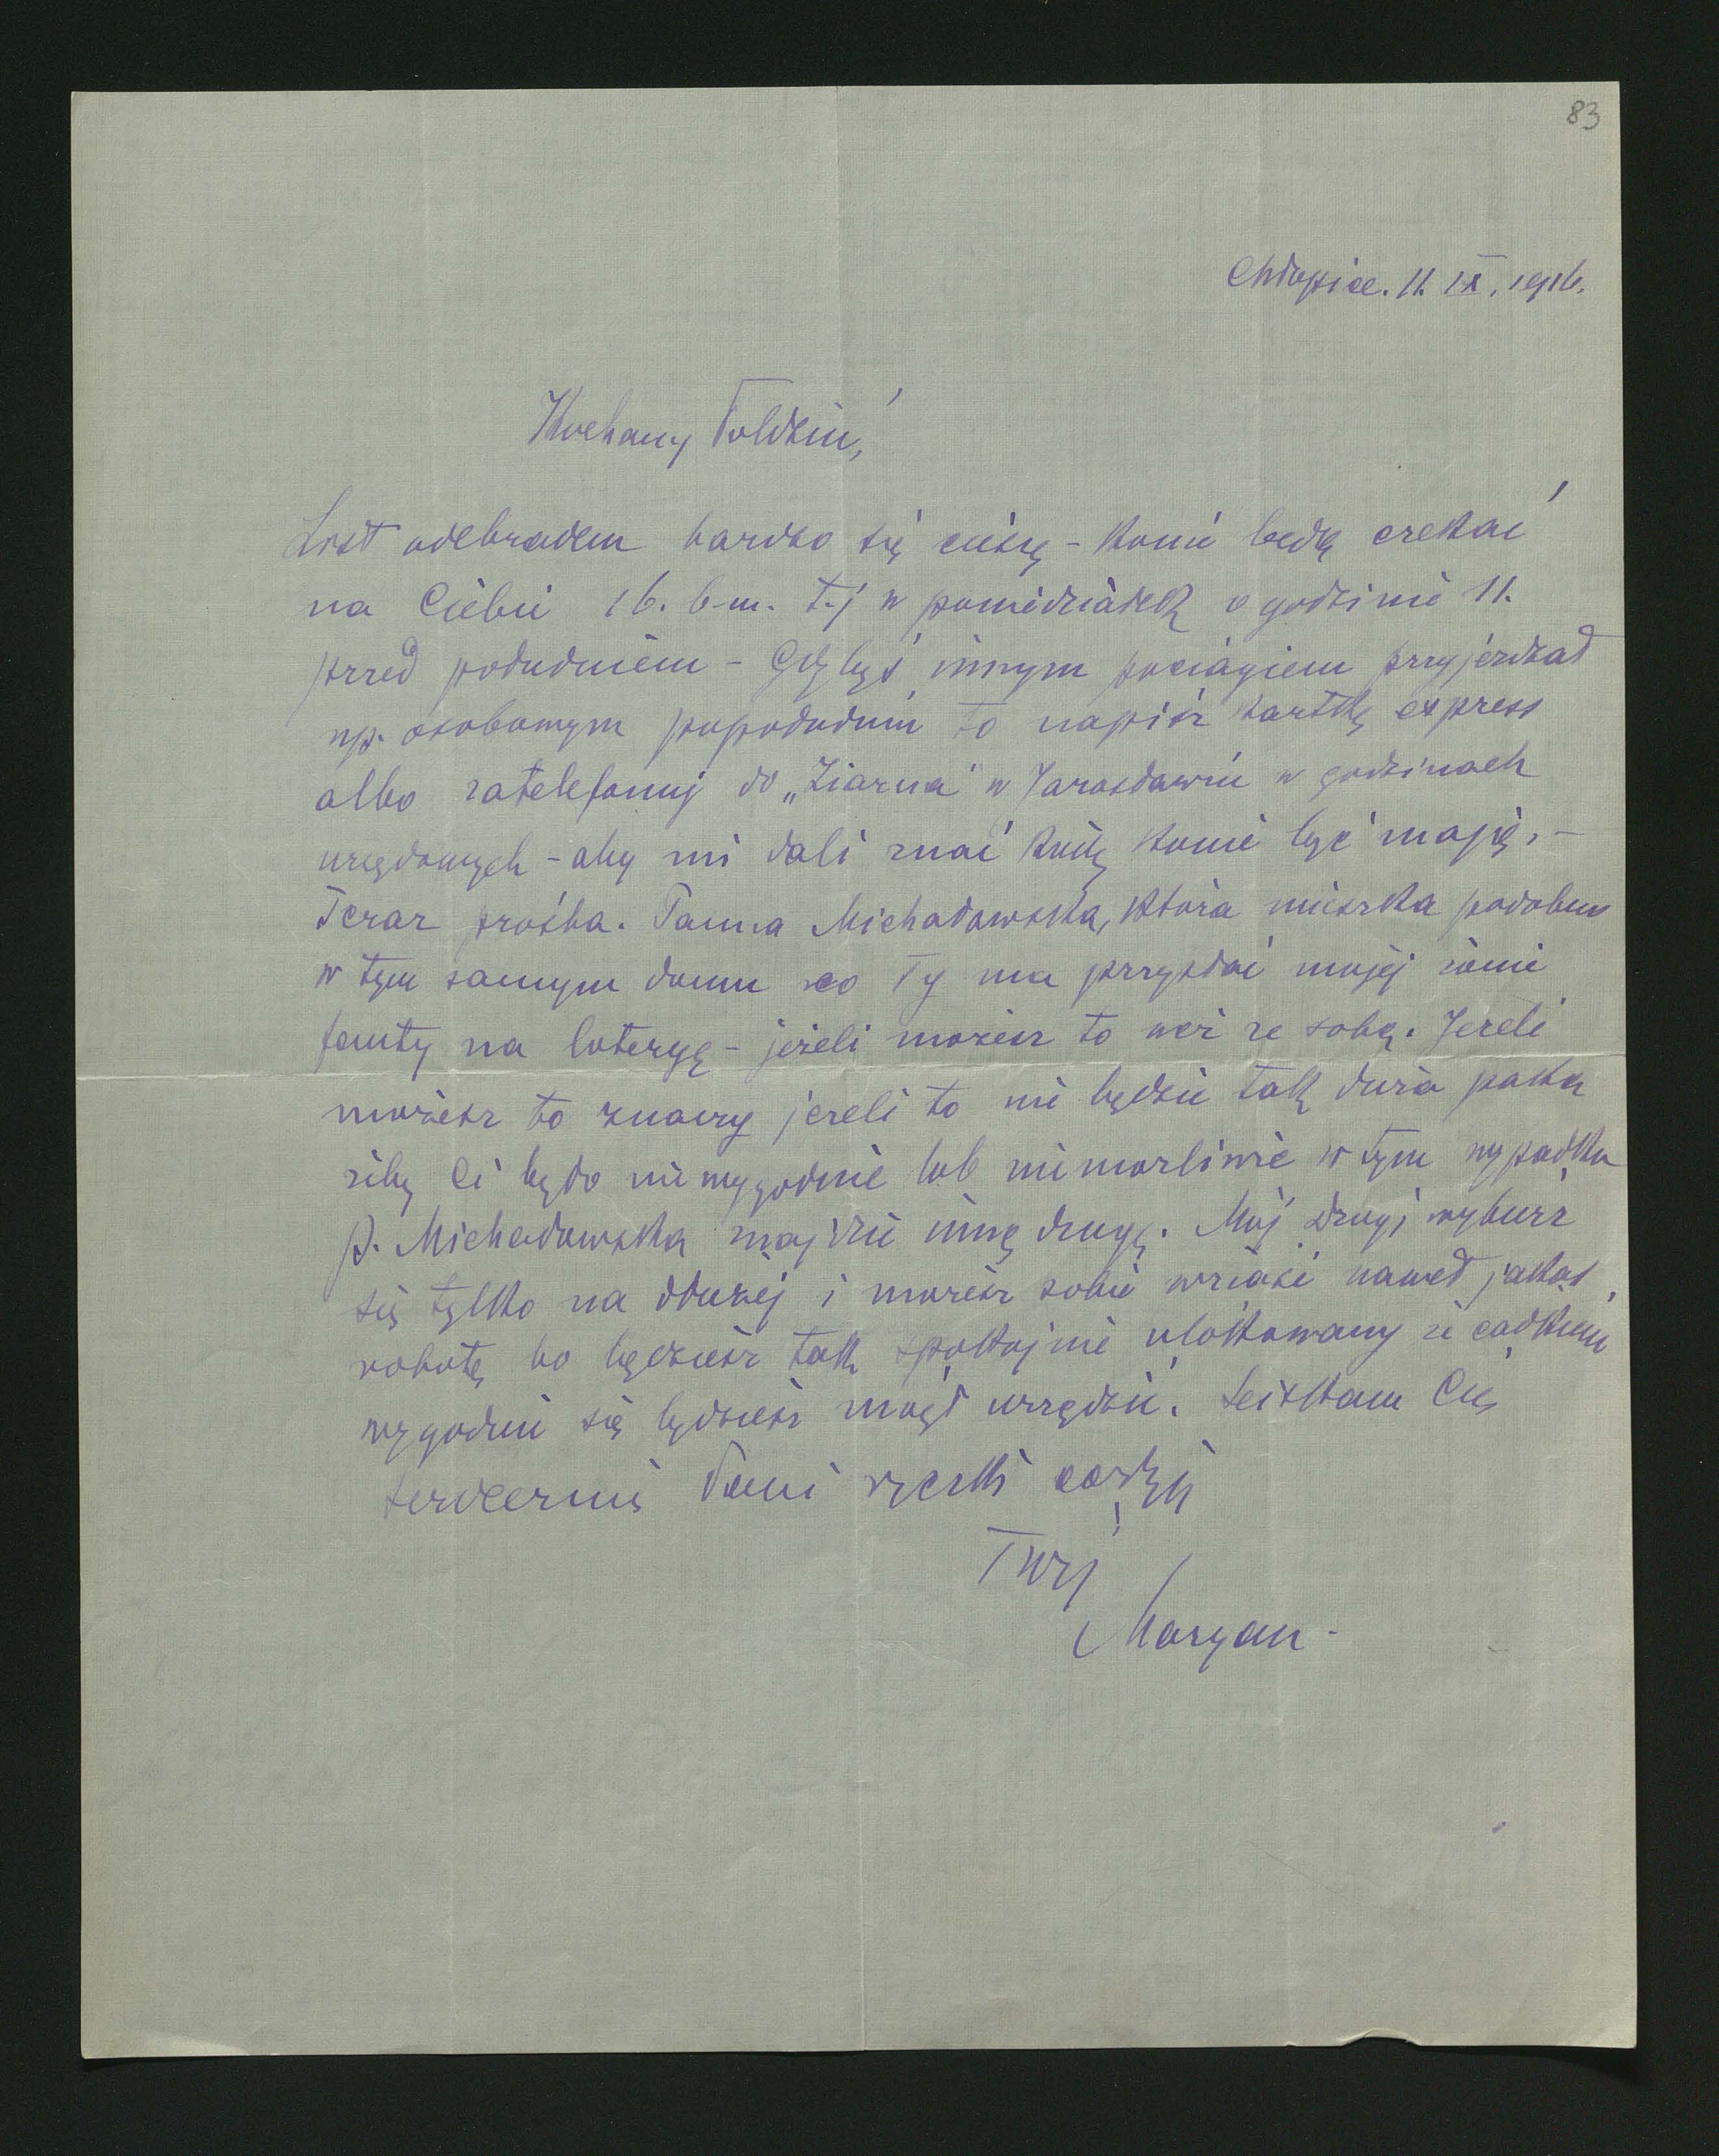 83
Chłopice. 11. IX. 1916.
Kochany Poldziu,
List odebrałem bardzo się cieszę - konie będą czekać
na Ciebie 16. b-m. t-j w poniedziałek o godzinie 11.
przed południem - Gdybyś innym pociągiem przyjeżdżał
np. osobowym popołudniu to napisz kartkę express
albo zatelefonuj do „Ziarna" w Jarosławiu w godzinach
urzędowych - aby mi dali znać kiedy konie być mają. -
Teraz prośba. Panna Michałowska, która mieszka podobno
w tym samym domu co Ty ma przysłać mojej żonie
fanty na loteryę - jeżeli możesz to weź ze sobą. Jeżeli
możesz to znaczy jeżeli to nie będzie tak duża paka
żeby Ci było niewygodnie lub niemożliwie w tym wypadku
p. Michałowska znajdzie inną drogę. Mój Drogi wybierz
się tylko na dłużej i możesz sobie wziąść nawet jakąś
robotę bo będziesz tak spokojnie ulokowany że całkiem
wygodnie się będziesz mógł urządzić. Sciskam Cię
serdecznie Pani rączki całuję
Twój
Maryan -